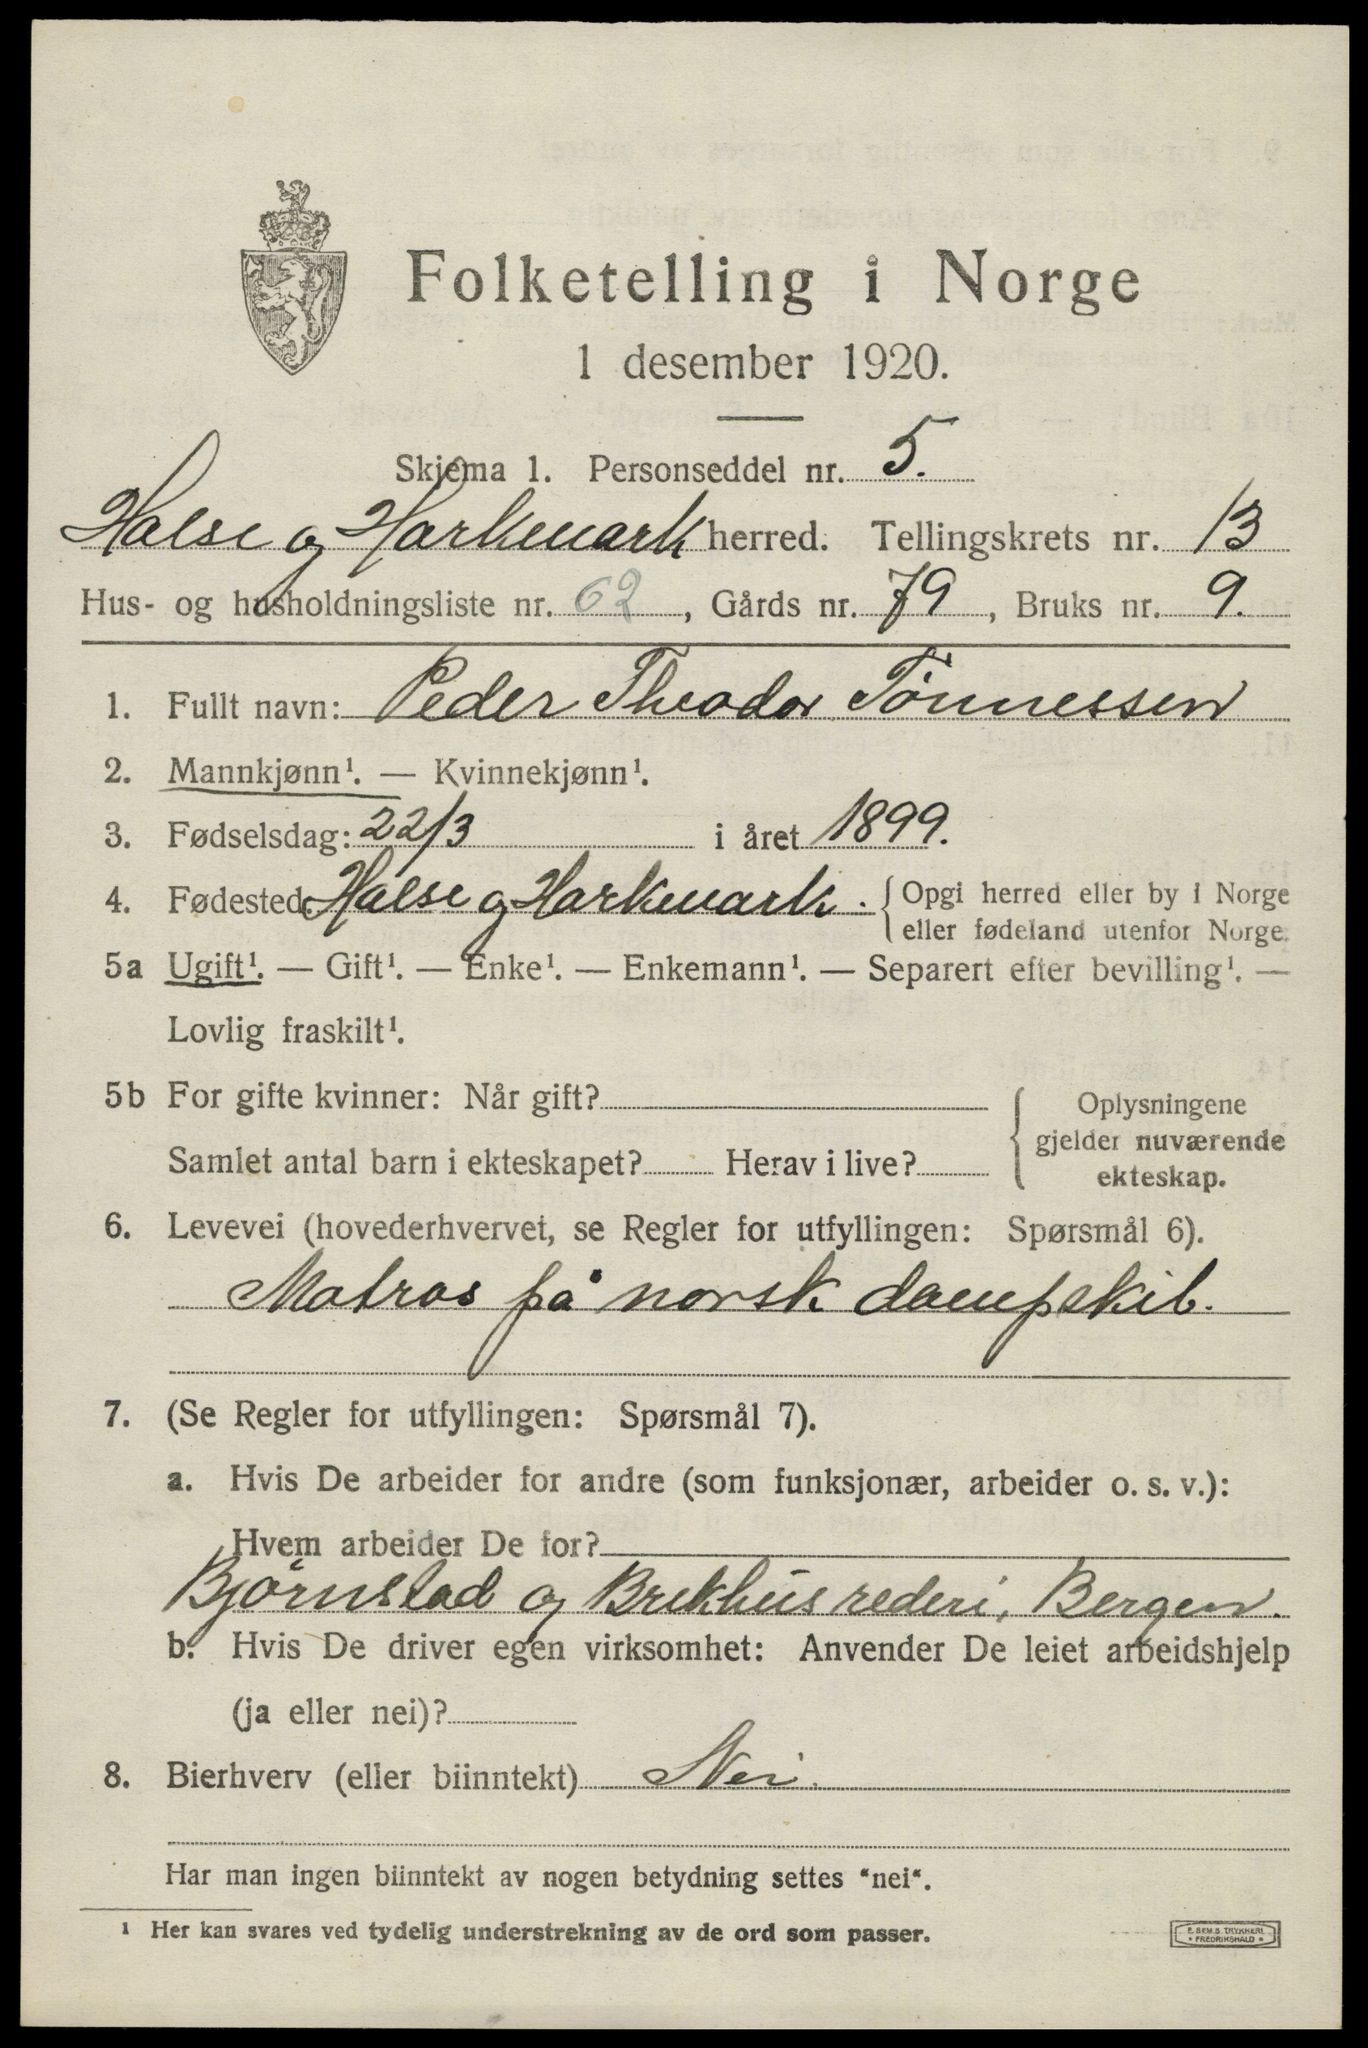 Folketelling i Norge
1 desember 1920.
Skjema 1. Personseddel nr. 5.
Halse og Harkmark herred. Tellingskrets nr. 13
Hus- og husholdningsliste nr. 62, Gårds nr. 79, Bruks nr. 9.
1. Fullt navn: Peder Theodor Tönnessen
2. Mannkjønn¹. — Kvinnekjønn¹.
3. Fødselsdag: 22/3 i året 1899.
4. Fødested: Halse og Harkmark. { Opgi herred eller by i Norge
eller fødeland utenfor Norge.
5a Ugift¹. — Gift¹. — Enke¹. — Enkemann¹. — Separert efter bevilling¹. —
Lovlig fraskilt¹.
5b For gifte kvinner: Når gift? { Oplysningene
gjelder nuværende
Samlet antal barn i ekteskapet? Herav i live?
ekteskap.
6. Levevei (hovederhvervet, se Regler for utfyllingen: Spørsmål 6).
Matros på norsk dampskib.
7. (Se Regler for utfyllingen: Spørsmål 7).
a. Hvis De arbeider for andre (som funksjonær, arbeider o. s. v.):
Hvem arbeider De for?
Bjørnstad og Brekhus rederi, Bergen.
b. Hvis De driver egen virksomhet: Anvender De leiet arbeidshjelp
(ja eller nei)?
8. Bierhverv (eller biinntekt) Nei.
Har man ingen biinntekt av nogen betydning settes "nei".
¹ Her kan svares ved tydelig understrekning av de ord som passer.
E. SEM.S TRYKKERI
* FREDRIKSHALD *